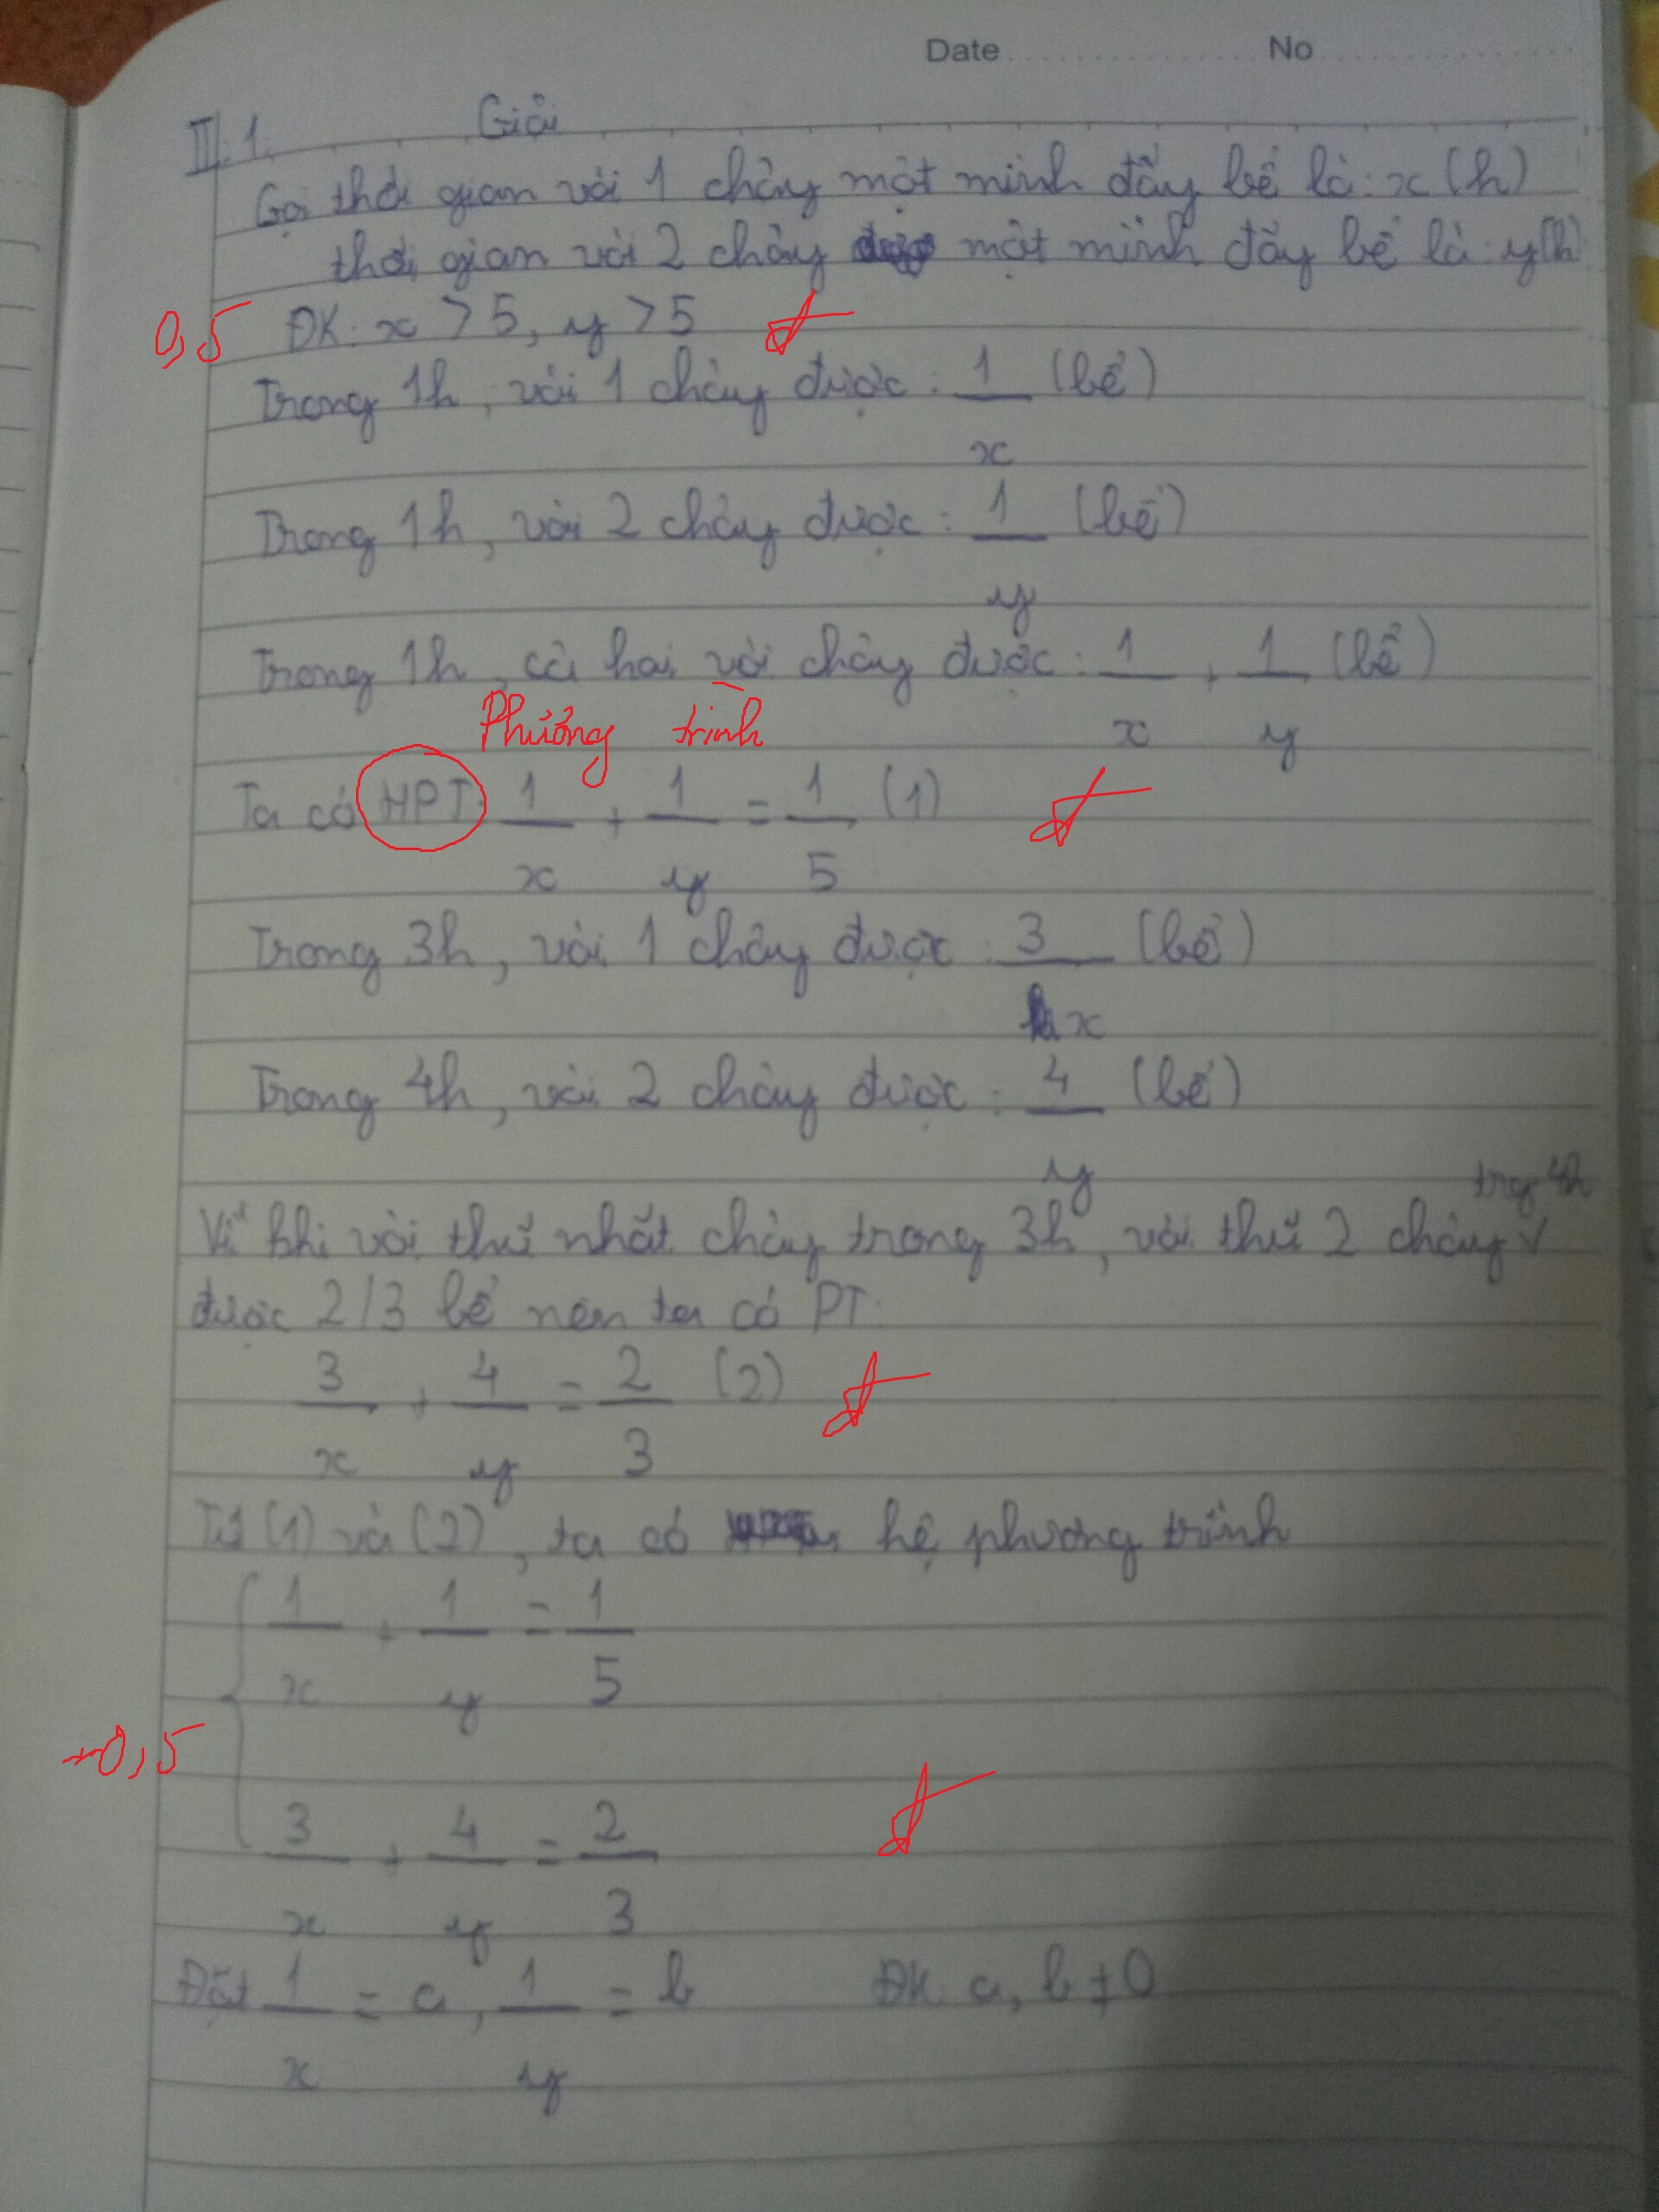 Date No
III.1. Giải
Gọi thời gian vòi 1 chảy một mình đầy bể là: x (h)
thời gian vòi 2 chảy một mình đầy bể là: y(h)
0,5 ĐK: x > 5, y > 5
Trong 1h, vòi 1 chảy được: 1/x (bể)
Trong 1h, vòi 2 chảy được: 1/y (bể)
Trong 1h, cả hai vòi chảy được: 1/x + 1/y (bể)
Phương trình
Ta có HPT: 1/x + 1/y = 1/5 (1)
Trong 3h, vòi 1 chảy được: 3/x (bể)
Trong 4h, vòi 2 chảy được: 4/y (bể)
trg 4h
Vì khi vòi thứ nhất chảy trong 3h, vòi thứ 2 chảy
được 2/3 bể nên ta có PT:
3/x + 4/y = 2/3 (2)
Từ (1) và (2), ta có hệ phương trình
1/x + 1/y = 1/5
+0,5
3/x + 4/y = 2/3
Đặt 1/x = a, 1/y = b ĐK: a, b ≠ 0